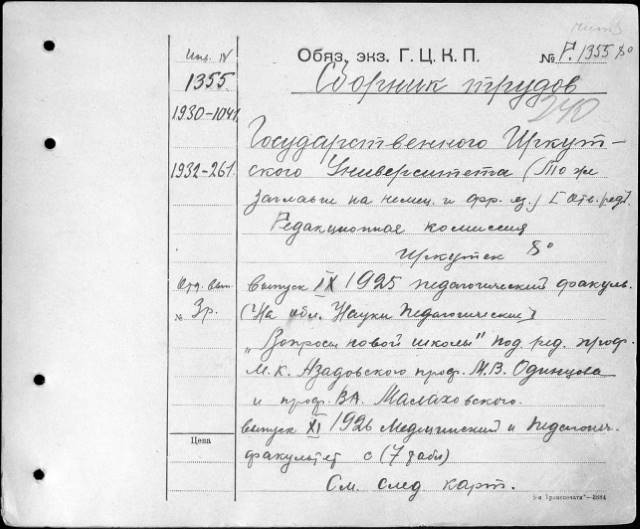 Инв. N
1355
1930-1041
1932-261
Отд. вып.
№ 3р.
Цена
Обяз. экз. Г.Ц.К.П.
№ Р. 1355 8°
Сборник трудов
240
Государственного Иркут-
ского Университета (То же
заглавие на немец. и фр. яз.) [Отв. ред.
Редакционная комиссия
Иркутск 8°
выпуск IX 1925 педагогический факуль.
(На обл. Науки Педагогические)
„Вопросы новой школы" под ред. проф.
М.К. Азадовского проф. М.В. Одинцова
и проф. В.А. Малаховского.
выпуск XI 1926 Медицинский и Педагогич.
факультет с (7 табл)
См. след карт.
5-я Транспечати—3684